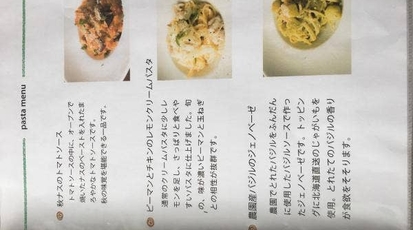 pasta menu
秋ナスのトマトソース
トマトソースの中に、オーブンで
焼いたナスのペーストを入れたま
ろやかなトマトソースです。
秋の味覚を堪能できる一品です。
ピーマンとチキンのレモンクリームパスタ
通常のクリームパスタに少しレ
モンを足し、さっぱりと食べや
すいパスタに仕上げました。旬
の、味が濃いピーマンと玉ねぎ
との相性が抜群です。
農園産バジルのジェノベーゼ
農園でとれたバジルをふんだん
に使用したバジルソースで作っ
たジェノベーゼです。トッピン
グに北海道直送のじゃがいもを
使用。とれたてのバジルの香り
が食欲をそそります。